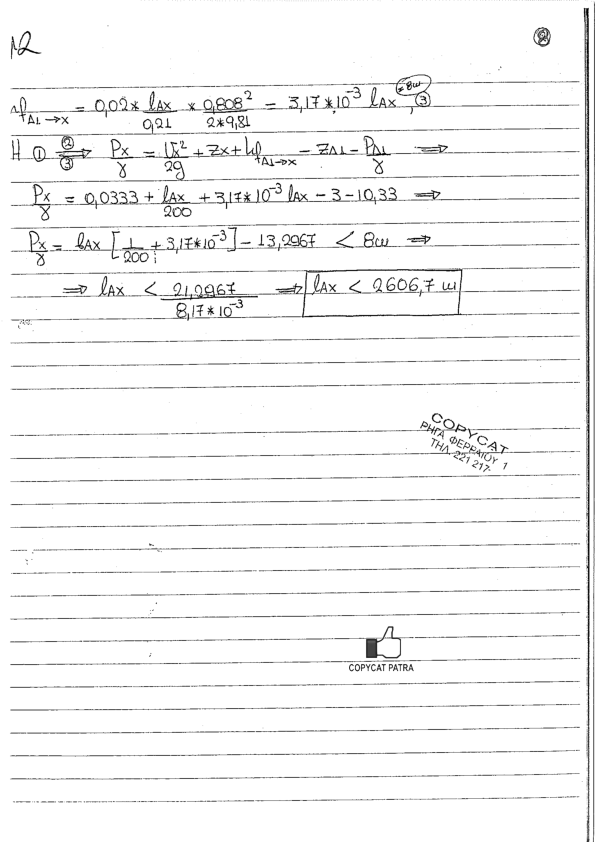 12
②
hf Δ1→X = 0,02 * lAX/0,21 * 0,808²/2*9,81 = 3,17*10⁻³ lAX, ③
H ① ②⇒③ Px/γ = Ux²/2g + Zx + hf Δ1→X - ZΔ1 - PΔ1/γ ⇒
Px/γ = 0,0333 + lAX/200 + 3,17*10⁻³ lAX - 3 - 10,33 ⇒
Px/γ = lAX [1/200 + 3,17*10⁻³] - 13,2967 < 8m ⇒
⇒ lAX < 21,2967/8,17*10⁻³ ⇒ lAX < 2606,7 m
COPYCAT
ΡΗΓΑ ΦΕΡΡΑΙΟΥ 1
ΤΗΛ. 221 217
COPYCAT PATRA